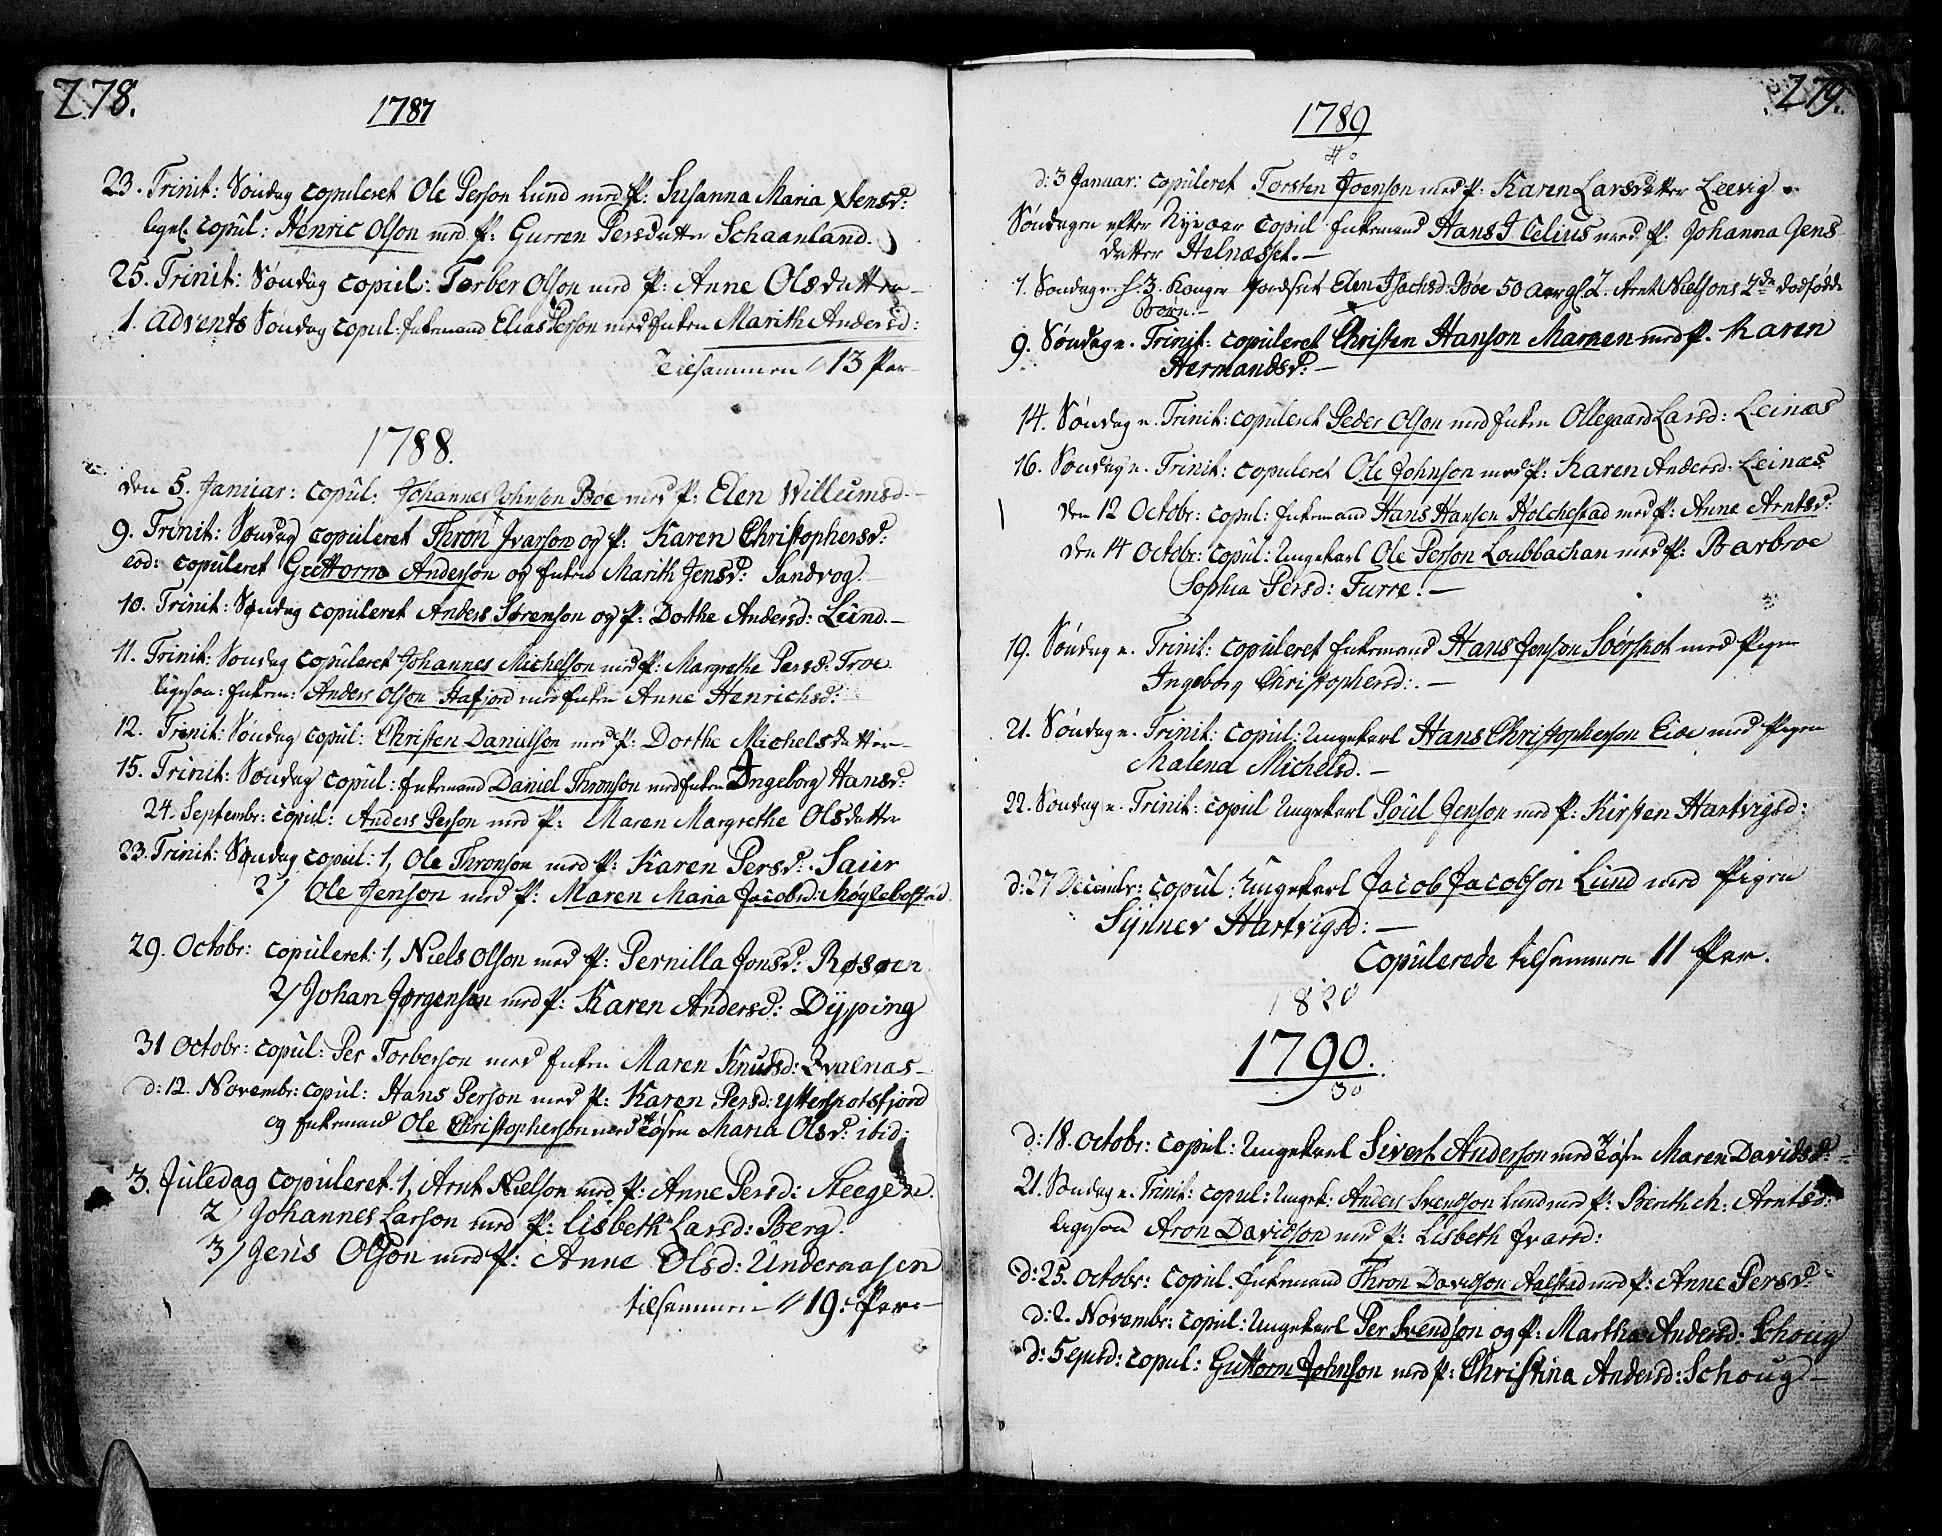 278.
1787
23. Trinit: Søndag copuleret Ole Person Lund med P: Susanna Maria Xtensd:
ligel. copul: Henric Olson med P: Gurren Persdatter Schaanland.
25. Trinit: Søndag copul: Torber Olson med P: Anne Olsdatter
1. Advents Søndag copul. Enkemand Elias Person med Enken Marith Andersd:
Tilsammen 13 Par
1788.
den 5. Januar: copul: Johannes Johnson Bøe med P: Elen Willumsd.
9. Trinit: Søndag copuleret Thron Ivarson og P: Karen Christophersd:
eod: copuleret Guttorm Anderson og Enken Marith Jensd: Sandvog.
10. Trinit: Søndag copuleret Anders Sørenson og P: Dorthe Andersd: Lund.
11. Trinit: Søndag copuleret Johannes Michelson med P: Margrethe Persd: Troe
ligesaa: Enkem: Anders Olson Hafjord med Enken Anne Henrichsd:
12. Trinit: Søndag copul: Christen Danielson med P: Dorthe Michelsdatter
15. Trinit: Søndag copul: Enkemand Daniel Thronson med Enken Ingeborg Hansd:
24. Septembr: copul: Anders Person med P: Maren Margrethe Olsdatter
23. Trinit: Søndag copul: 1, Ole Thronson med P: Karen Persd: Saur
2/ Ole Jenson med P: Maren Maria Jacobsd: Møglebostad
29. Octobr: copuleret: 1, Niels Olson med P: Pernilla Jonsd: Røsøen
2/ Johan Jørgenson med P: Karen Andersd: Dypping
31 Octobr: copul: Per Torberson med Enken Maren Knudsd: Evalnas
d: 12. Novembr: copul: Hans Person med P: Karen Persd: Ytterskotsfjord
og Enkemand Ole Christopherson med Tøsen Maria Olsd: ibid:
3. Juledag copuleret: 1, Arnt Nielson med P: Anne Persd: Steegen.
2/ Johannes Larson med P: Lisbeth Larsd: Berg.
3/ Jens Olson med P: Anne Olsd: Underaasen
tilsammen 19: Par
279.
1789
d: 3 Januar: copuleret Torsten Joenson med P: Karen Larsdatter Leevig
Søndagen efter Nyeaar copul Enkemand Hans J Celius med P. Johanna Jens
datter Helnæsset.
1. Søndag e. H. 3. Konger Jordfæst Elen Isachsd. Bøe 50 Aar gl. 2. Arnt Nielsons 2de dødfødde
Børn.
9. Søndag e. Trinit: copuleret Christen Hanson Marnen med P. Karen
Hermandsd:
14. Søndag e. Trinit: copuleret Peder Olson med Enken Ollegaard Larsd: Leinæs
16. Søndag e. Trinit: copuleret Ole Johnson med P: Karen Andersd: Leinæs
den 12 Octobr: copul: Enkemand Hans Hansen Holchestad med P: Anne Arntsd:
den 14 Octobr: copul: Ungekarl Ole Person Loubbachan med P: Barbroe
Sophia Persd: Furre.
19. Søndag e. Trinit: copuleret Enkemand Hans Jonson Sørskot med Pigen
Ingeborg Christophersd:
21. Søndag e. Trinit: copul: Ungekarl Hans Christopherson Eide med Pigen
Malena Michelsd.
22. Søndag e. Trinit: copul Ungekarl Poul Jenson med P: Kirsten Hartvigsd:
d: 27 Decembr: copul: Ungekarl Jacob Jacobson Lund med Pigen
Synnev Hartvigsd:
Copulerede tilsammen 11 Par.
1820
1790.
30
d: 18. Octobr: copul: Ungekarl Sivert Anderson med Tøsen Maren Davidsd:
21. Søndag e. Trinit: copul: Ungek: Anders Svendson Lund med P: Berith ch: Arntsd:
ligesaa Aron Davidson med P: Lisbeth Ivarsd:
d: 25. Octobr: copul. Enkemand Thron Davidson Aalstad med P: Anne Persd:
d: 2. Novembr: copul: Ungekarl Per Svendson og P: Martha Andersd: Schoug
d: 5 ejusd: copul: Guttorm Johnson med P: Christina Andersd: Schoug